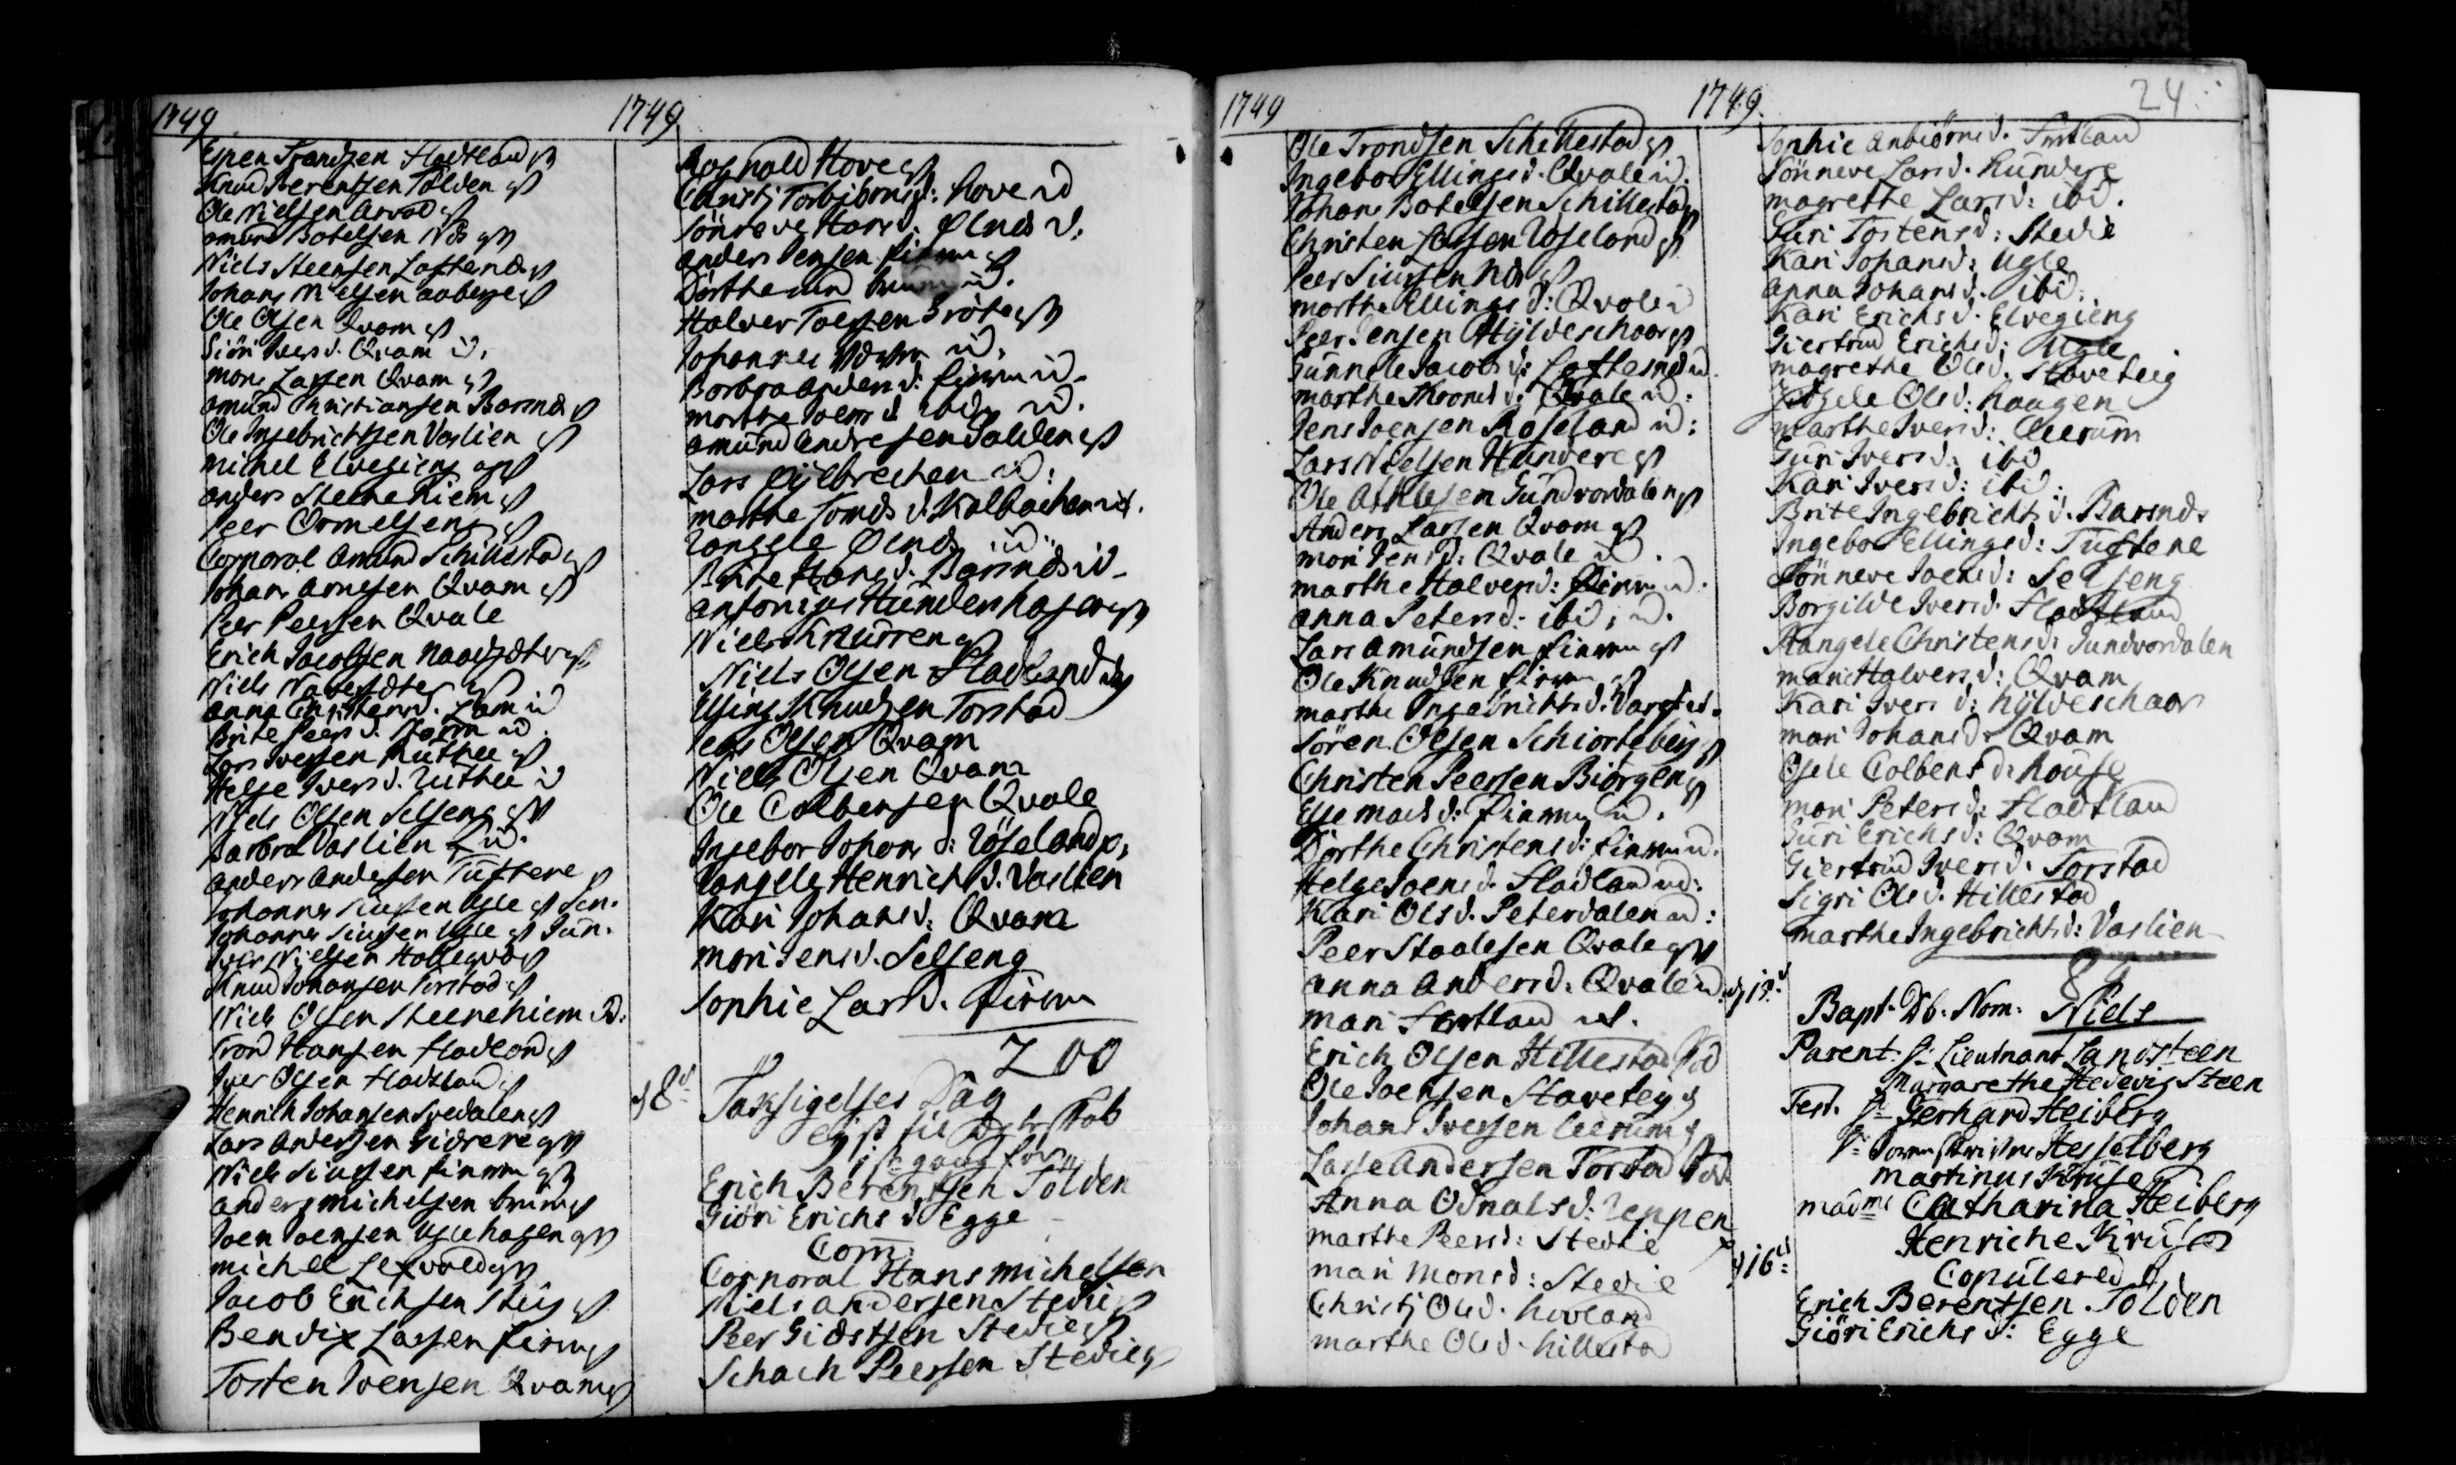 1749
Espen Trandsen Fladtland
Knud Berentsen Tolden
Ole Nielsen
Amund Botelsen Nds
Niels Steensen Loftesnds
Johans Nielsen Aaberge
Ole Olsen Qvam
Giöri Ivers d. Qvam
Mons Lassen Qvam
Amund Christiansen Barsnds
Ole Ingebrichtsen Vaslien
Michel Elvegieng
Anders Steenehiem
Peer Ormelseng
Corporal Amund Schillestad
Johans Arnesen Qvam
Peer Peersen Qvale
Erich Jacobsen
Niels
Anna Christens d. Lam
Brite Peers d. Storm
Lars Iversen Ruthle
Helge Ivers d. Ruthle
Niels Olsen Selseng
Barbra Vaslien
Anders Andersen Tuftene
Johannes Siursen Ugle Sen.
Johannes Siursen Ugle Jun.
Iver Nielsen
Knud Johansen Torstad
Niels Olsen Steenehiem
Trond Hansen Fladland
Iver Olsen Fladtland
Henrich Johansen Svedalen
Lars Andersen
Niels Siursen Finnum
Anders Michelsen
Joen Joensen Uglehagen
Michel
Jacob Erichsen Steig
Bendix Lassen
Torsten Joensen Qvam
1749
Rognald Hove
Christj Torbiörns d: Hove
Sönneve Hans d: Ølnds
Anders Jensen Finnum
Dorthe
Halver Toessen Bröte
Johannes
Borbra Anders d: Finnum
Marthe Joens d. ibd.
Amund Andresen Tolden
Lars
Marthe Tomds d. Kalbachen
Rangele Ølnds
Brite Hans d. Barsnds
Antonius Hundershagen
Niels Knurren
Niels Olsen Fladland
Elling Knudsen Torstad
Jens Olsen Qvam
Niels Olsen Qvam
Ole Colbensen Qvale
Ingebor Johans d: Röseland
Rangele Henrichs d. Vaslien
Kari Johans d: Qvam
Mari Jens d. Selseng
Sophie Lars d.
200
d 8de Taksigelses Dag
Erich Berentsen Tolden
Giöri Erichs d. Egge
Com:
Corporal Hans Michelsen
Niels Andersen Stedie
Peer Giöstsen Stedie
Schach Peersen Stedie
1749
Ole Trondsen Schillestad
Ingebor Ellings d. Qvale
Johans Botelsen Schillestad
Christen Lassen Röseland
Peer Siursen Nds
Marthe Ellings d: Qvale
Peer Jensen Hyldeschaar
Gunnele Jacobs d: Loftesnds
Marthe Throns d: Qvale
Jens Joensen Röseland
Lars Nielsen Hundere
Ole Atlesen Gundvordalen
Anders Lassen Qvam
Mari Jens d: Qvale
Marthe Halvers d: Finnum
Anna Peters d: ibid:
Lars Amundsen Finnum
Ole Knudsen Finnum
Marthe Ingebrichts d.
Sören Olsen Schiorteberg
Christen Peersen Biörgen
Else Mads d: Finnum
Dorthe Christens d: Finnum
Helge Joens d. Fladland
Kari Ols d. Peterdalen
Peer Staalesen Qvale
Anna Anders d. Qvale
Mari
Erich Olsen Hillestad
Ole Joensen Staveteig
Johans Iversen Ceerum
Lasse Andersen Torstad
Anna Odnals d:
Marthe Peers d: Stedie
Mari Mons d: Stedie
Christj Ols d. Hovland
Marthe Ols d. Hillestad
1749
24
Sophie Anbiörns d.
Sönneve Lars d. Hundere
Magrethe Lars d: ibid.
Guri Tostens d: Stedie
Kari Johans d: Ugle
Anna Johans d. ibid:
Kari Erichs d. Elvegieng
Giertrud Erichs d: Ugle
Magrethe Ols d. Staveteig
Ols d: Haagen
Marthe Ivers d: Ceerum
Guri Ivers d: ibid
Kari Ivers d: ibid:
Brite Ingebrichts d. Barsnds
Ingebor Ellings d: Tuftene
Sönneve Joens d: Selseng
Borgilde Ivers d. Fladtland
Rangele Christens d: Gundvordalen
Mari Halvers d: Qvam
Kari Ivers d: Hyldeschaar
Mari Johans d. Qvam
Osele Colbens d: House
Mari Peters d: Fladtland
Guri Erichs d: Qvam
Giertrud Ivers d. Torstad
Sigri Ols d. Hillestad
Marthe Ingebrichts d: Vaslien
d 13de Bapt. Db. Nom. Niels
Parent: Sr Lieutnant Landsteen
Margarethe Hedevig Steen
Test. Sr Gerhard Heiberg
Hesselberg
Martinus Kruse
Madme Catharina Heiberg
Henriche Kruse
d 16de Copulered
Erich Berentsen Tolden
Giöri Erichs d: Egge